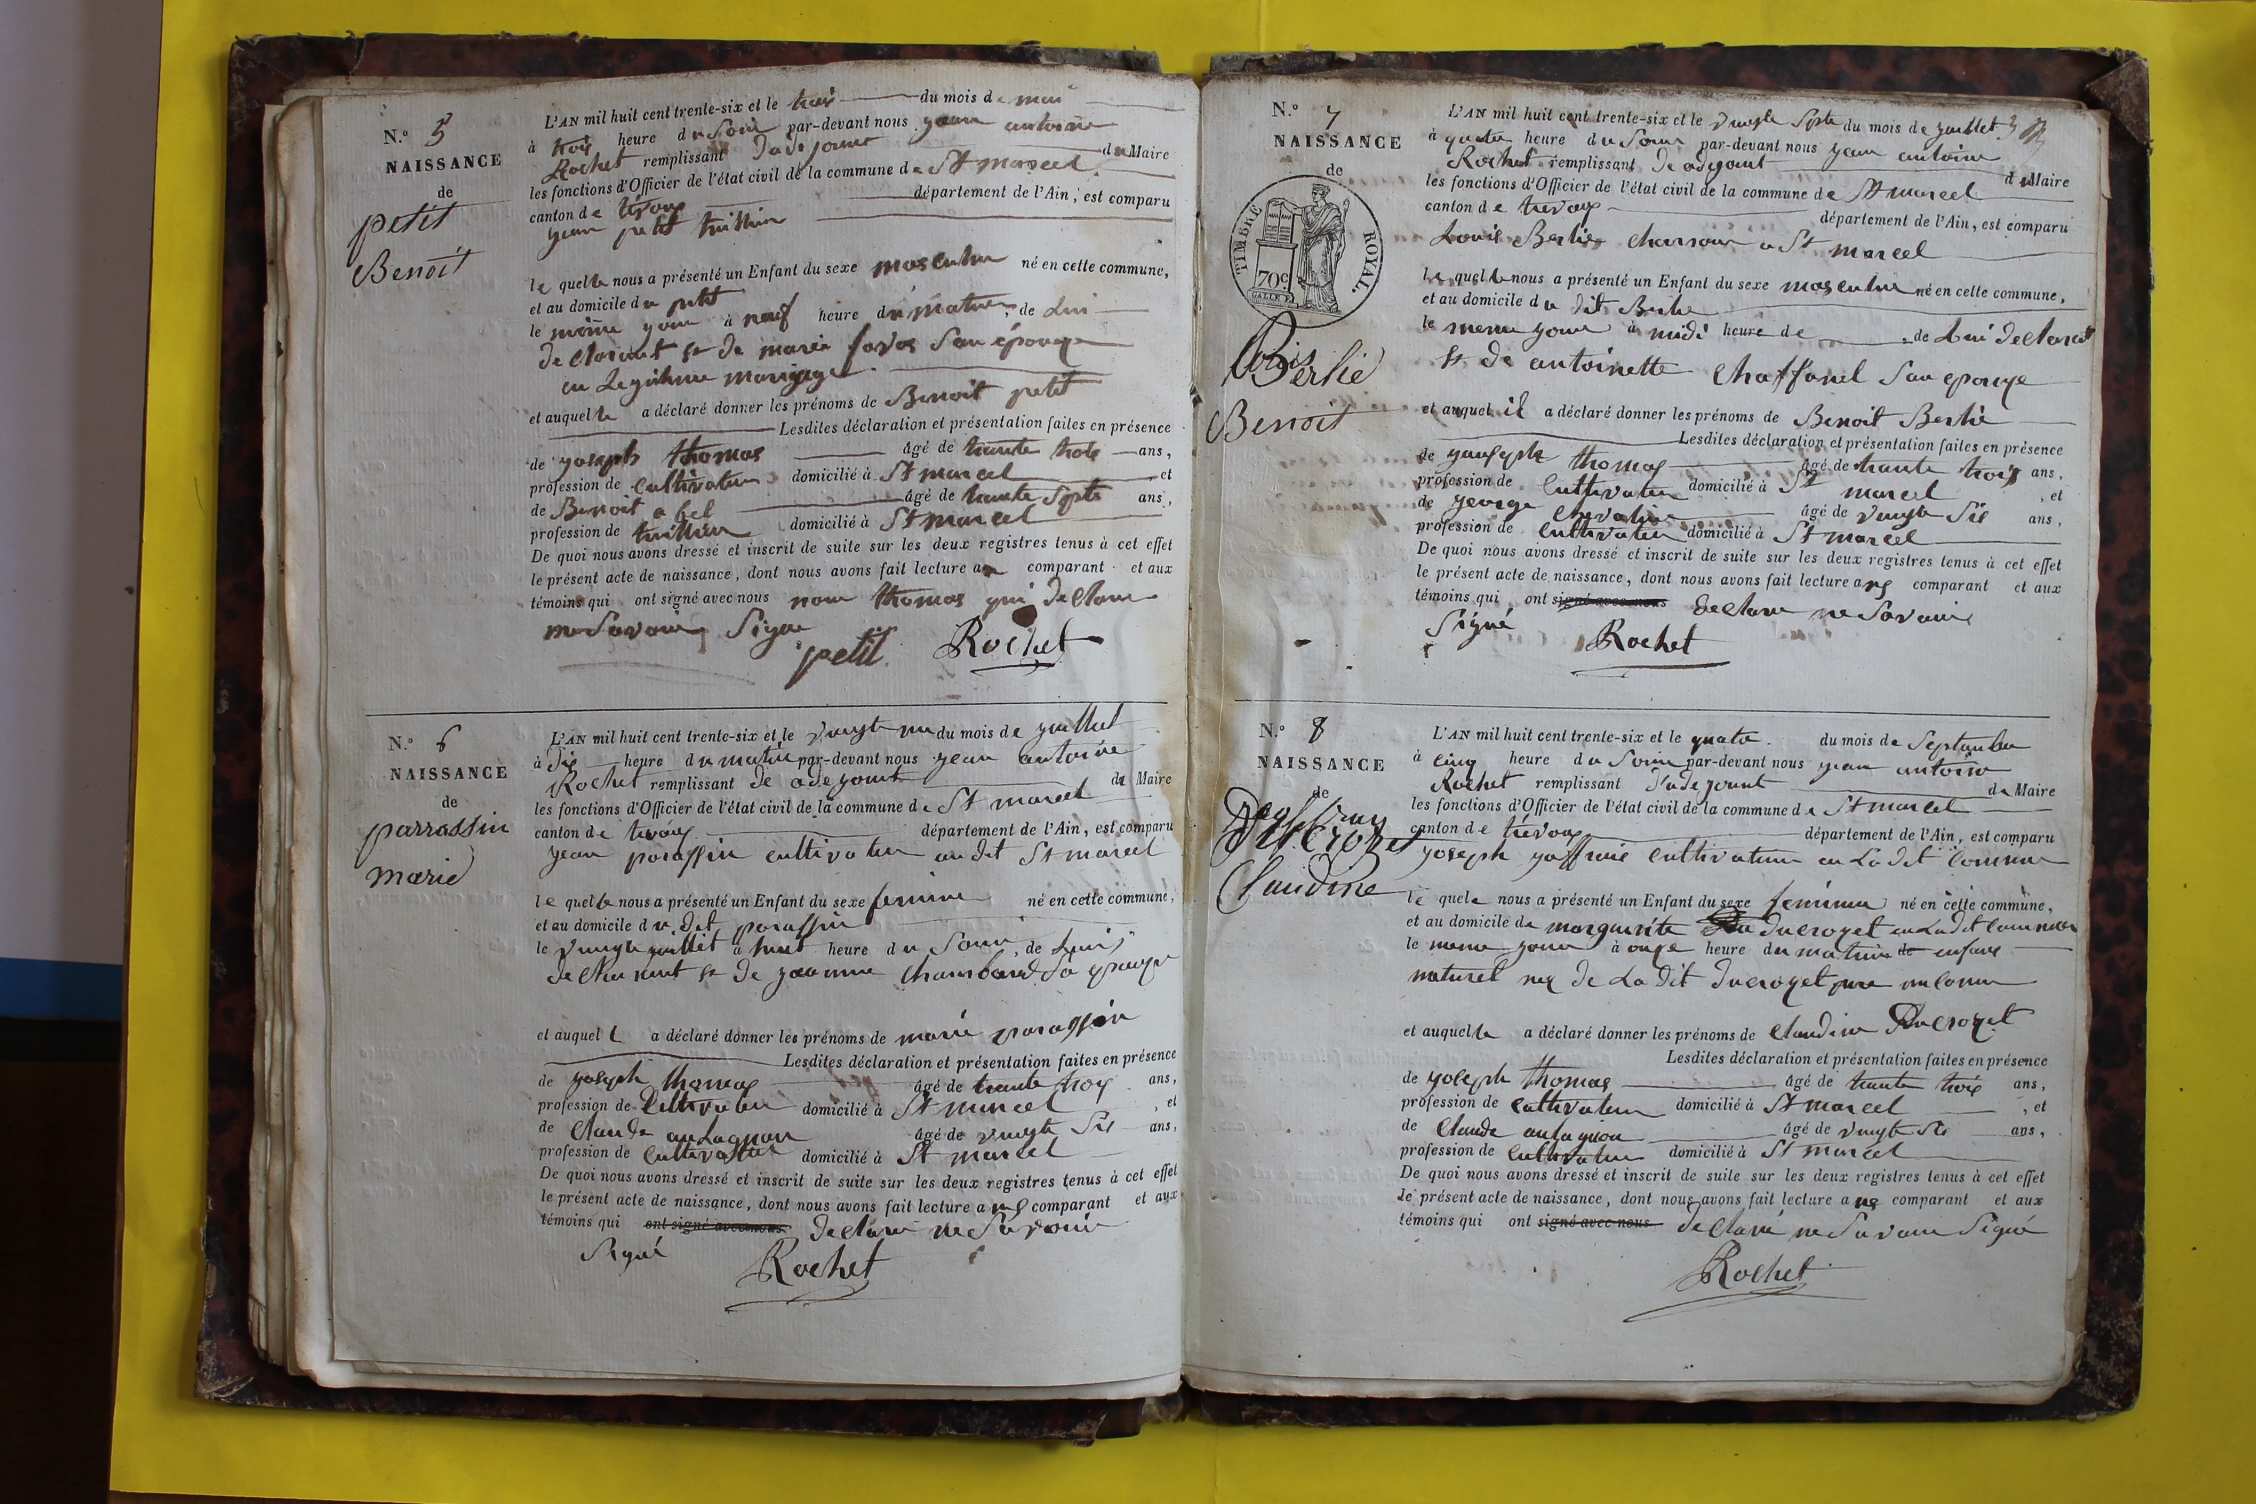 N.° 5
NAISSANCE
de
petit
Benoit
L'AN mil huit cent trente-six et le trois du mois de mai
à trois heure du Soir par-devant nous jean antoine
Rochet remplissant d'adejoint du Maire
les fonctions d'Officier de l'état civil de la commune de St marcel
canton de trévoux département de l'Ain, est comparu
jean petit tuillier
le quelle nous a présenté un Enfant du sexe masculin né en cette commune,
et au domicile du petit
le même jour à neuf heure du matin, de Lui
declarant & de marie Son épouze
en Legitime mariage
et auquel le a déclaré donner les prénoms de Benoit petit
Lesdites déclaration et présentation faites en présence
de yoseph thomas âgé de trante trois ans,
profession de cultivateur domicilié à St marcel et
de Benoit abel âgé de trante Spte ans,
profession de tuillier domicilié à St marcel
De quoi nous avons dressé et inscrit de suite sur les deux registres tenus à cet effet
le présent acte de naissance, dont nous avons fait lecture au comparant et aux
témoins qui ont signé avec nous non thomas qui declare
ne Savoir Signe
petit Rochet
N.° 6
NAISSANCE
de
parrassin
marie
L'AN mil huit cent trente-six et le vingte un du mois de juillet
à dis heure du matin par-devant nous jean antoine
Rochet remplissant de adejoint du Maire
les fonctions d'Officier de l'état civil de la commune de St marcel
canton de trevoux département de l'Ain, est comparu
jean parassin cultivateur au dit St marcel
le quelle nous a présenté un Enfant du sexe feminin né en cette commune,
et au domicile du dit parassin
le vingte juillet à huit heure du Soir, de Lui
declarant & de jeanne Chambard Sa epouze
et auquel l a déclaré donner les prénoms de marie parassin
Lesdites déclaration et présentation faites en présence
de yoseph thomas âgé de trante trois ans,
profession de Cultivateur domicilié à St marcel, et
de Claude aulagnon âgé de vingte Sis ans,
profession de Cultivateur domicilié à St marcel
De quoi nous avons dressé et inscrit de suite sur les deux registres tenus à cet effet
le présent acte de naissance, dont nous avons fait lecture au comparant et aux
témoins qui ont signé avec nous declaré ne Savoir
Signé
Rochet
N.° 7
NAISSANCE
de
TIMBRE ROYAL.
70c
Berlié
Benoit
L'AN mil huit cent trente-six et le vingte Spte du mois de juillet
à quatre heure du Soir par-devant nous jean antoine
Rochet remplissant de adejoint du Maire
les fonctions d'Officier de l'état civil de la commune de St marcel
canton de trevoux département de l'Ain, est comparu
Louis Berlie Charron a St marcel
le quelle nous a présenté un Enfant du sexe masculin né en cette commune,
et au domicile du dit Berlie
le meme jour à midi heure de , de Lui declarant
& de antoinette Chaffanel Son epouze
et auquel il a déclaré donner les prénoms de Benoit Berlié
Lesdites déclaration et présentation faites en présence
de yauseph thomas âgé de trante trois ans,
profession de Cultivateur domicilié à St marcel, et
de george chevalier âgé de vingte Sis ans,
profession de Cultivateur domicilié à St marcel
De quoi nous avons dressé et inscrit de suite sur les deux registres tenus à cet effet
le présent acte de naissance, dont nous avons fait lecture au comparant et aux
témoins qui ont signé avec nous declare ne Savoir
Signé
Rochet
N.° 8
NAISSANCE
de
Claudine
L'AN mil huit cent trente-six et le quatre du mois de Septembre
à cinq heure du Soir par-devant nous jean antoine
Rochet remplissant d'adejoint du Maire
les fonctions d'Officier de l'état civil de la commune de St marcel
canton de trévoux département de l'Ain, est comparu
yoseph cultivateur en La dit Commune
le quele nous a présenté un Enfant du sexe feminin né en cette commune,
et au domicile de marguerite Ducrozet en Ladit Commune
le meme jour à onze heure du matin de enfant
naturel nez de La dit Ducrozet pere inconnu
et auquel le a déclaré donner les prénoms de Claudine Ducrozet
Lesdites déclaration et présentation faites en présence
de yoseph thomas âgé de trante trois ans,
profession de Cultivateur domicilié à St marcel, et
de Claude aulagnon âgé de vingte Sis ans,
profession de Cultivateur domicilié à St marcel
De quoi nous avons dressé et inscrit de suite sur les deux registres tenus à cet effet
le présent acte de naissance, dont nous avons fait lecture au comparant et aux
témoins qui ont signé avec nous declaré ne Savoir Signé
Rochet